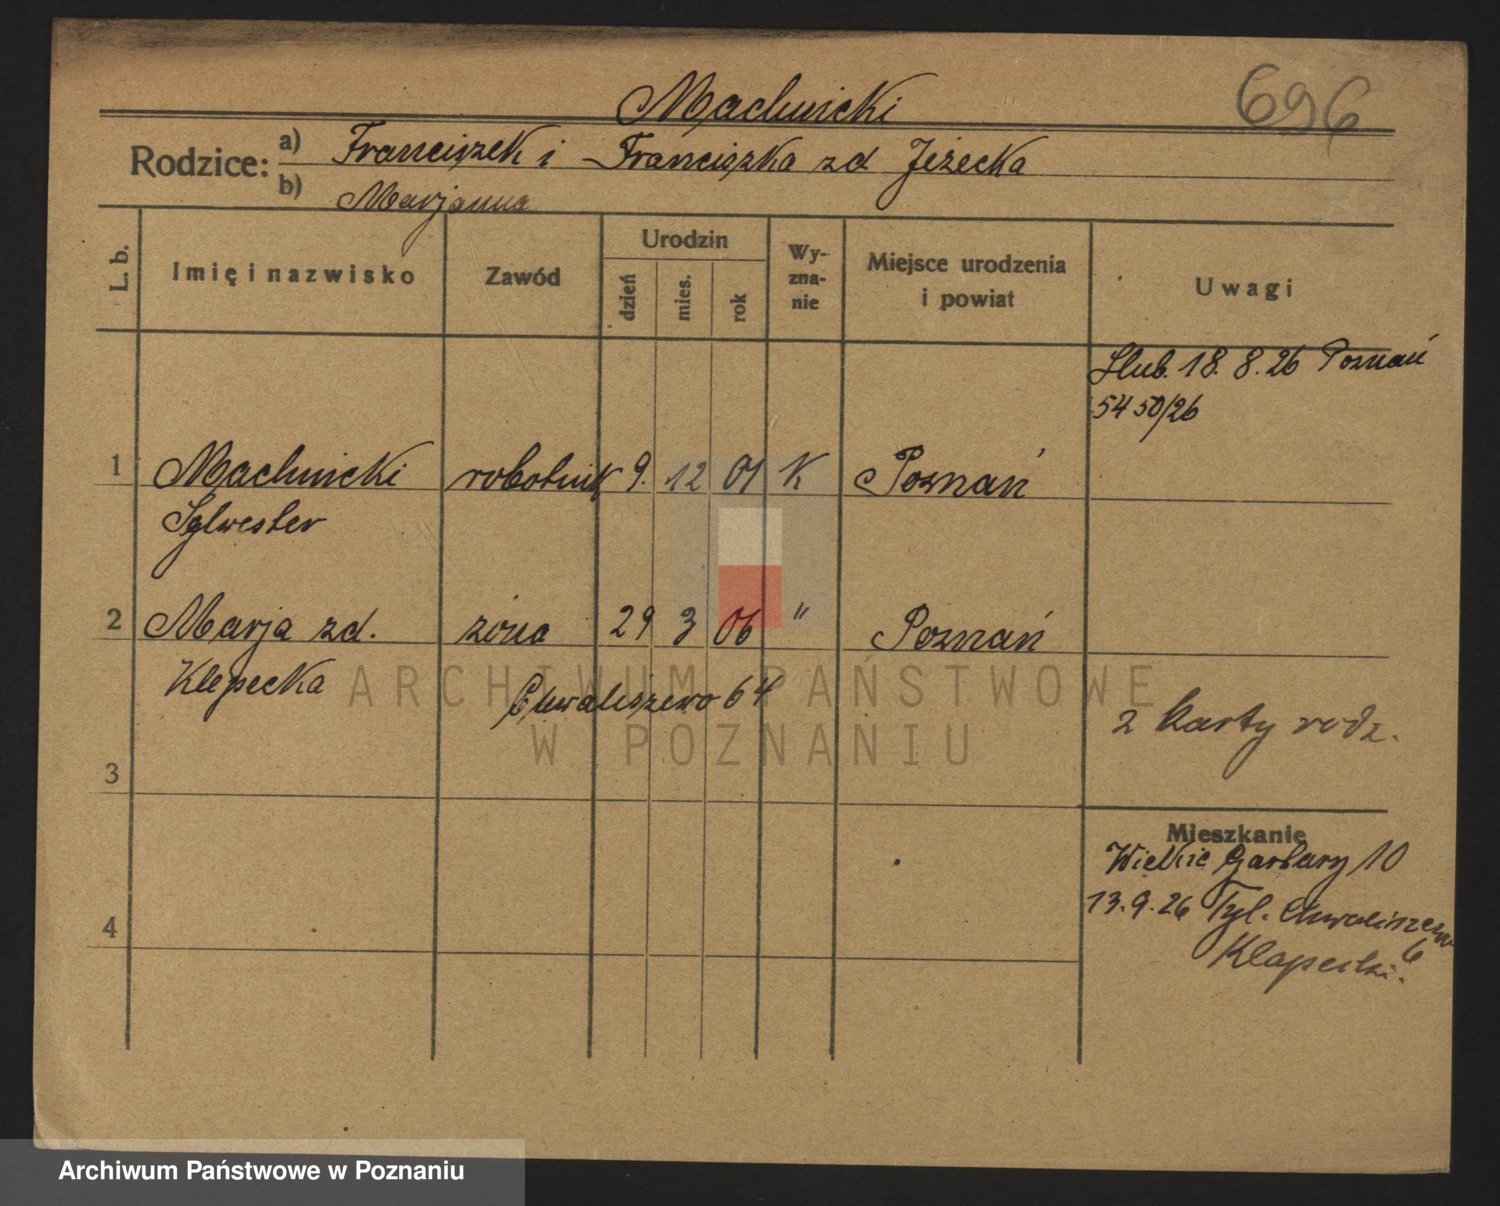 696
Machnicki
Rodzice:
a) Franciszek i Franciszka zd Jeżecka
b) Marjanna
L. b.
Imię i nazwisko
Zawód
Urodzin
dzień
mies.
rok
Wy-
zna-
nie
Miejsce urodzenia
i powiat
Uwagi
Ślub. 18. 8. 26 Poznań
5450/26
1 Machnicki robotnik 9. 12 01 K Poznań
Sylwester
2 Marja zd. żona 29 3 06 " Poznań
Klepecka
Chwaliszewo 64
2 karty rodz.
3
Mieszkanie
Wielkie Garbary 10
13.9.26 Tyl. Chwaliszewo
6
4
ARCHIWUM PAŃSTWOWE
W POZNANIU
Archiwum Państwowe w Poznaniu